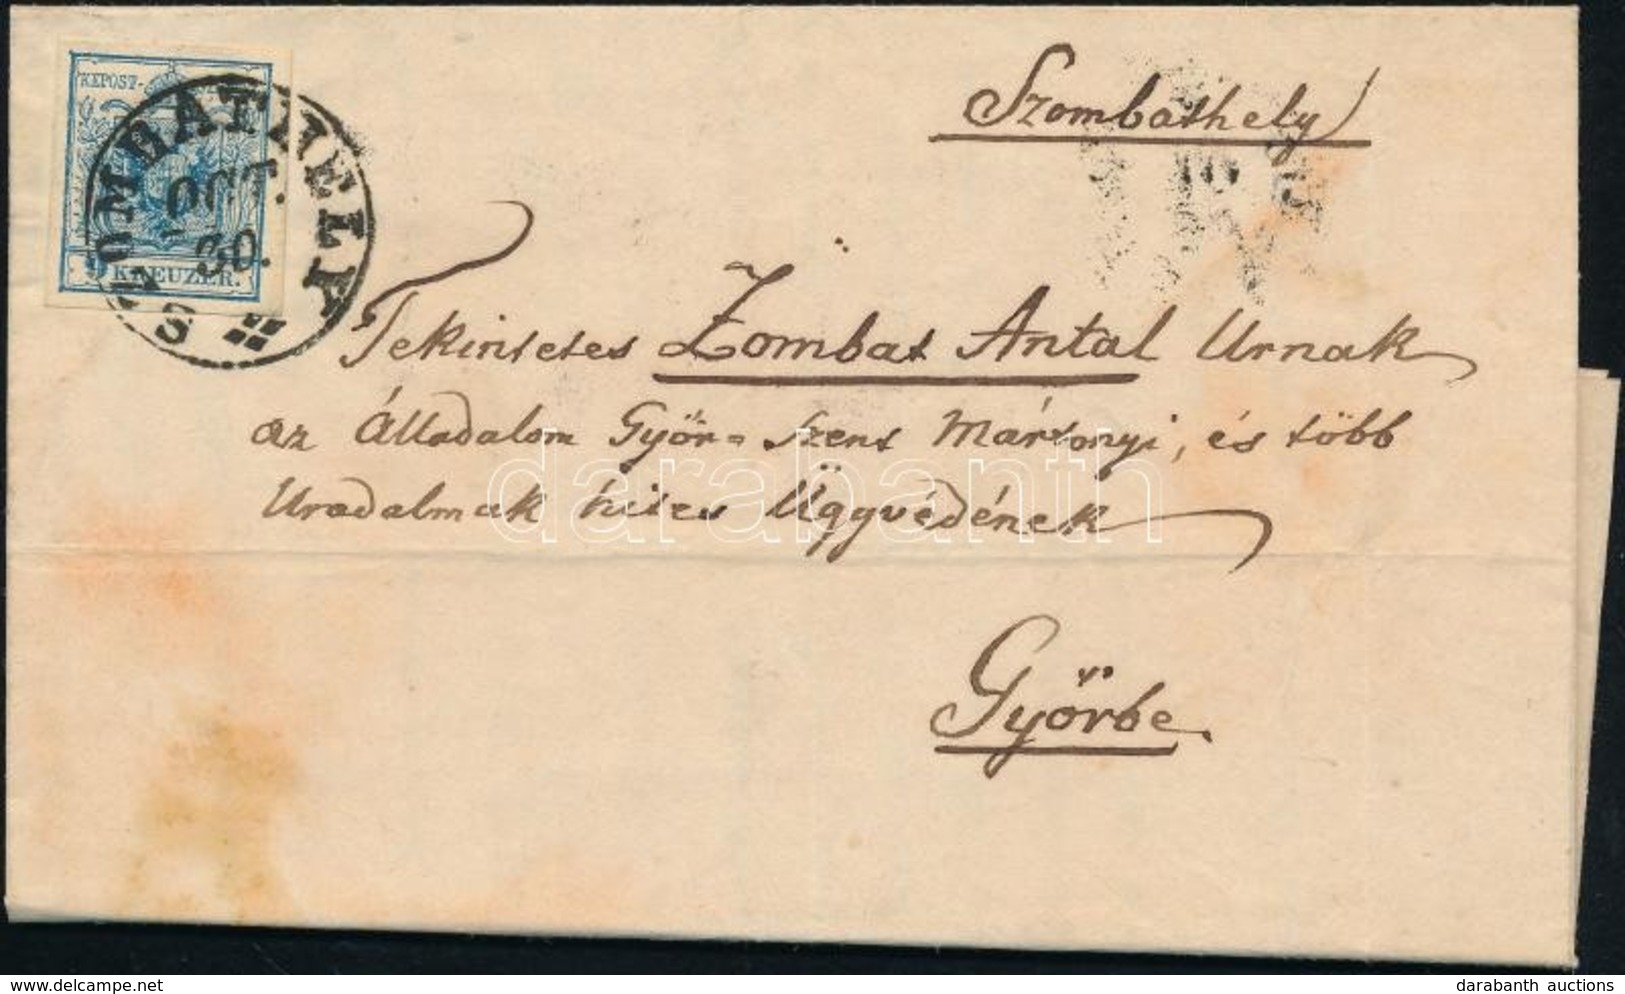 Szombathely
KKPOST-
SZOMBATHELY
OCT.
30.
9 KREUZER.
Tekintetes Zombat Antal Urnak
az Álladalom Győr= Szent Mártonyi, és több
Uradalmak hites Ügyvédének
Győrbe.
darabanth
darabanth auctions